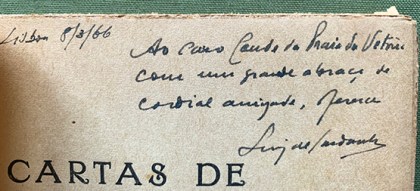 Lisboa 8/3/66
Ao caro Conde da Praia da Vitória
com um grande abraço de
cordial amizade, oferece
Luiz de
CARTAS DE